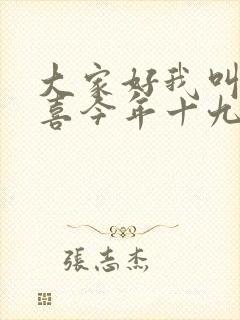 大家好我叫
喜今年十九
張志杰